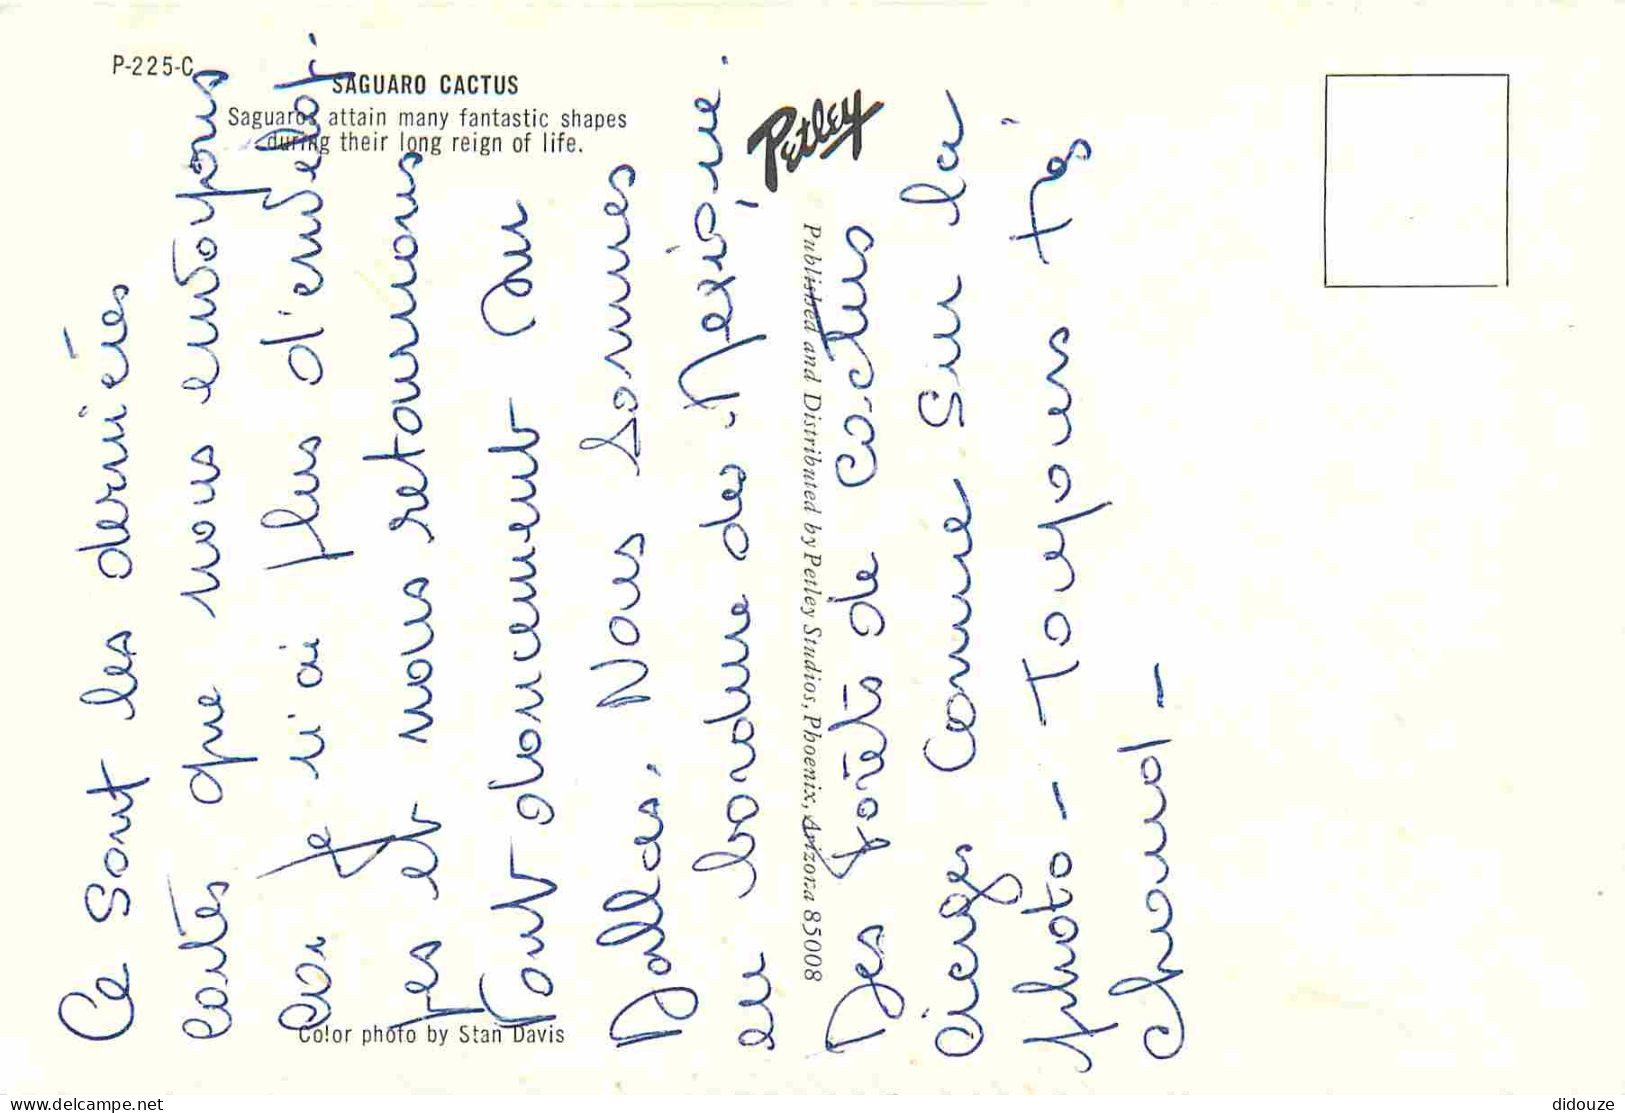 P-225-C
SAGUARO CACTUS
Saguaros attain many fantastic shapes
during their long reign of life.
Petley
Published and Distributed by Petley Studios, Phoenix, Arizona 85008
Color photo by Stan Davis
Ce sont les dernières
cartes que nous envoyons
car je n'ai plus d'envelop-
pes et nous retournons
tout doucement sur
Dallas. Nous sommes
en bordure du Mexique.
Des forêts de cactus
cierges comme sur la
photo - Toujours
chaud -
didouze
delcampe.net